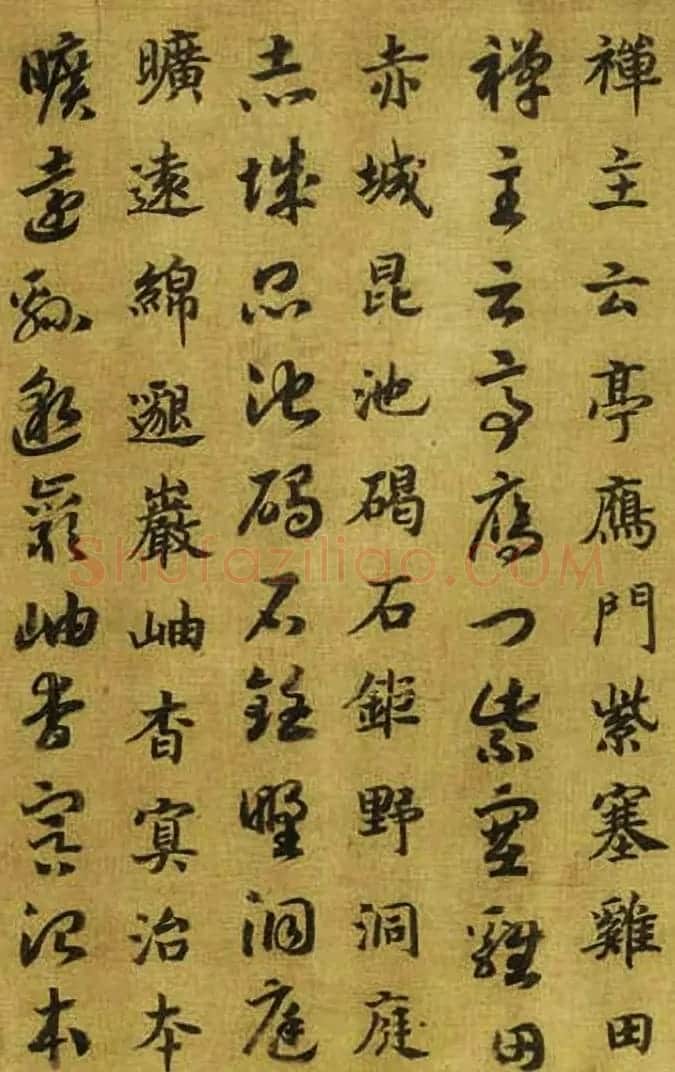 禪主云亭鴈門紫塞雞田
禪主云亭鴈門紫塞雞田
赤城昆池碣石鉅野洞庭
赤城昆池碣石鉅野洞庭
曠遠綿邈巖岫杳冥治本
曠遠綿邈巖岫杳冥治本
Shufaziliao.COM